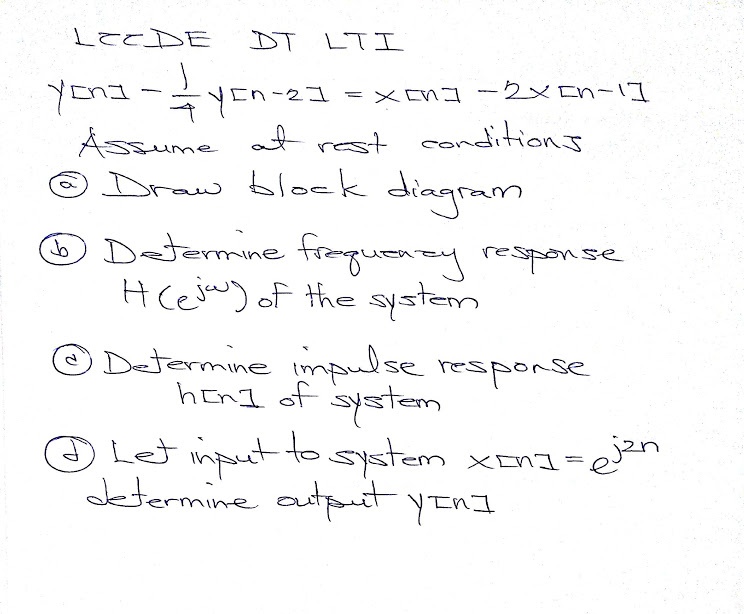 LCCDE DT LTI
y[n] - 1/4 y[n-2] = x[n] - 2x[n-1]
Assume at rest conditions
ⓐ Draw block diagram
ⓑ Determine frequency response
H(e^jω) of the system
ⓒ Determine impulse response
h[n] of system
ⓓ Let input to system x[n] = e^j2n
determine output y[n]